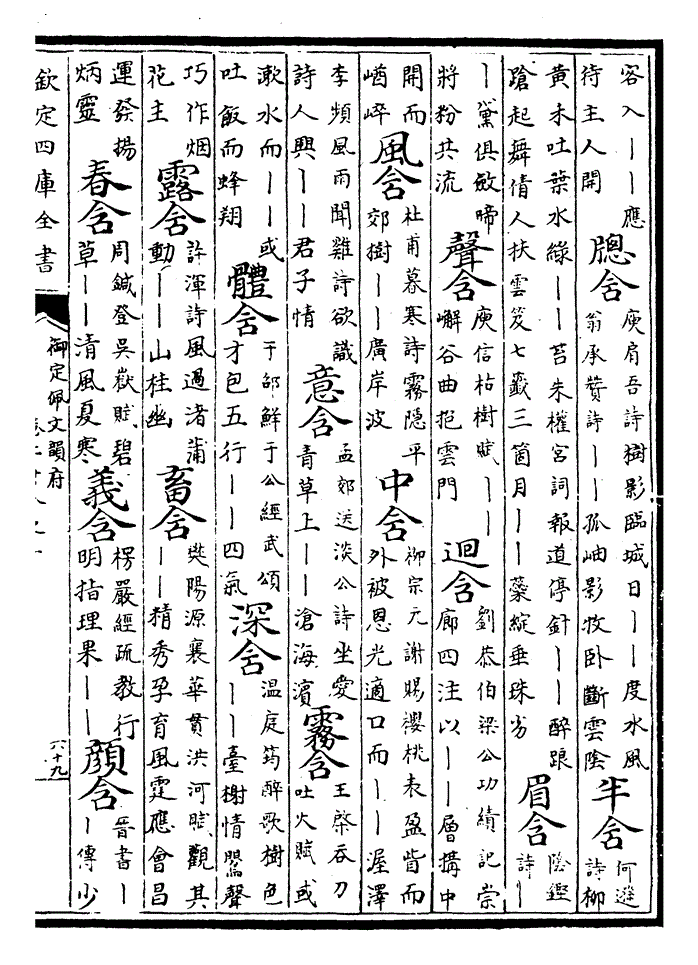 容入｜｜應
待主人開
牕含
庾肩吾詩樹影臨城日｜｜度水風
翁承贊詩｜｜孤岫影牧卧斷雲陰
半含
何遜
詩柳
黃未吐葉水綠｜｜苔朱權宮詞報道停針｜｜醉踉
蹌起舞倩人扶雲笈七籖三箇月｜｜蘂綻垂珠劣
眉含
陰鏗
詩｜
｜黛俱斂啼
將粉共流
聲含
庾信枯樹賦｜｜
嶰谷曲抱雲門
迴含
劉恭伯梁公功績記崇
廊四注以｜｜層構中
開而
崪
風含
杜甫暮寒詩霧隠平
郊樹｜｜廣岸波
中含
柳宗元謝賜櫻桃表盈眥而
外被恩光適口而｜｜渥澤
李頻風雨聞雞詩欲識
詩人興｜｜君子情
意含
孟郊送淡公詩坐愛
青草上｜｜滄海濱
霧含
王棨吞刀
吐火賦或
漱水而｜｜或
吐飯而蜂翔
體含
于邵鮮于公經武頌
才包五行｜｜四氣
深含
温庭筠醉歌樹色
｜｜臺榭情聲
巧作烟
花主
露含
許渾詩風過渚蒲
動｜｜山桂幽
畜含
樊陽源襄華貫洪河賦觀其
｜｜精秀孕育風霆應會昌
運發揚
炳靈
春含
周鍼登吳嶽賦碧
草｜｜清風夏寒
義含
楞嚴經疏教行
明指理果｜｜
顔含
晉書｜
｜傳少
欽定四庫全書
御定佩文韻府
六十九